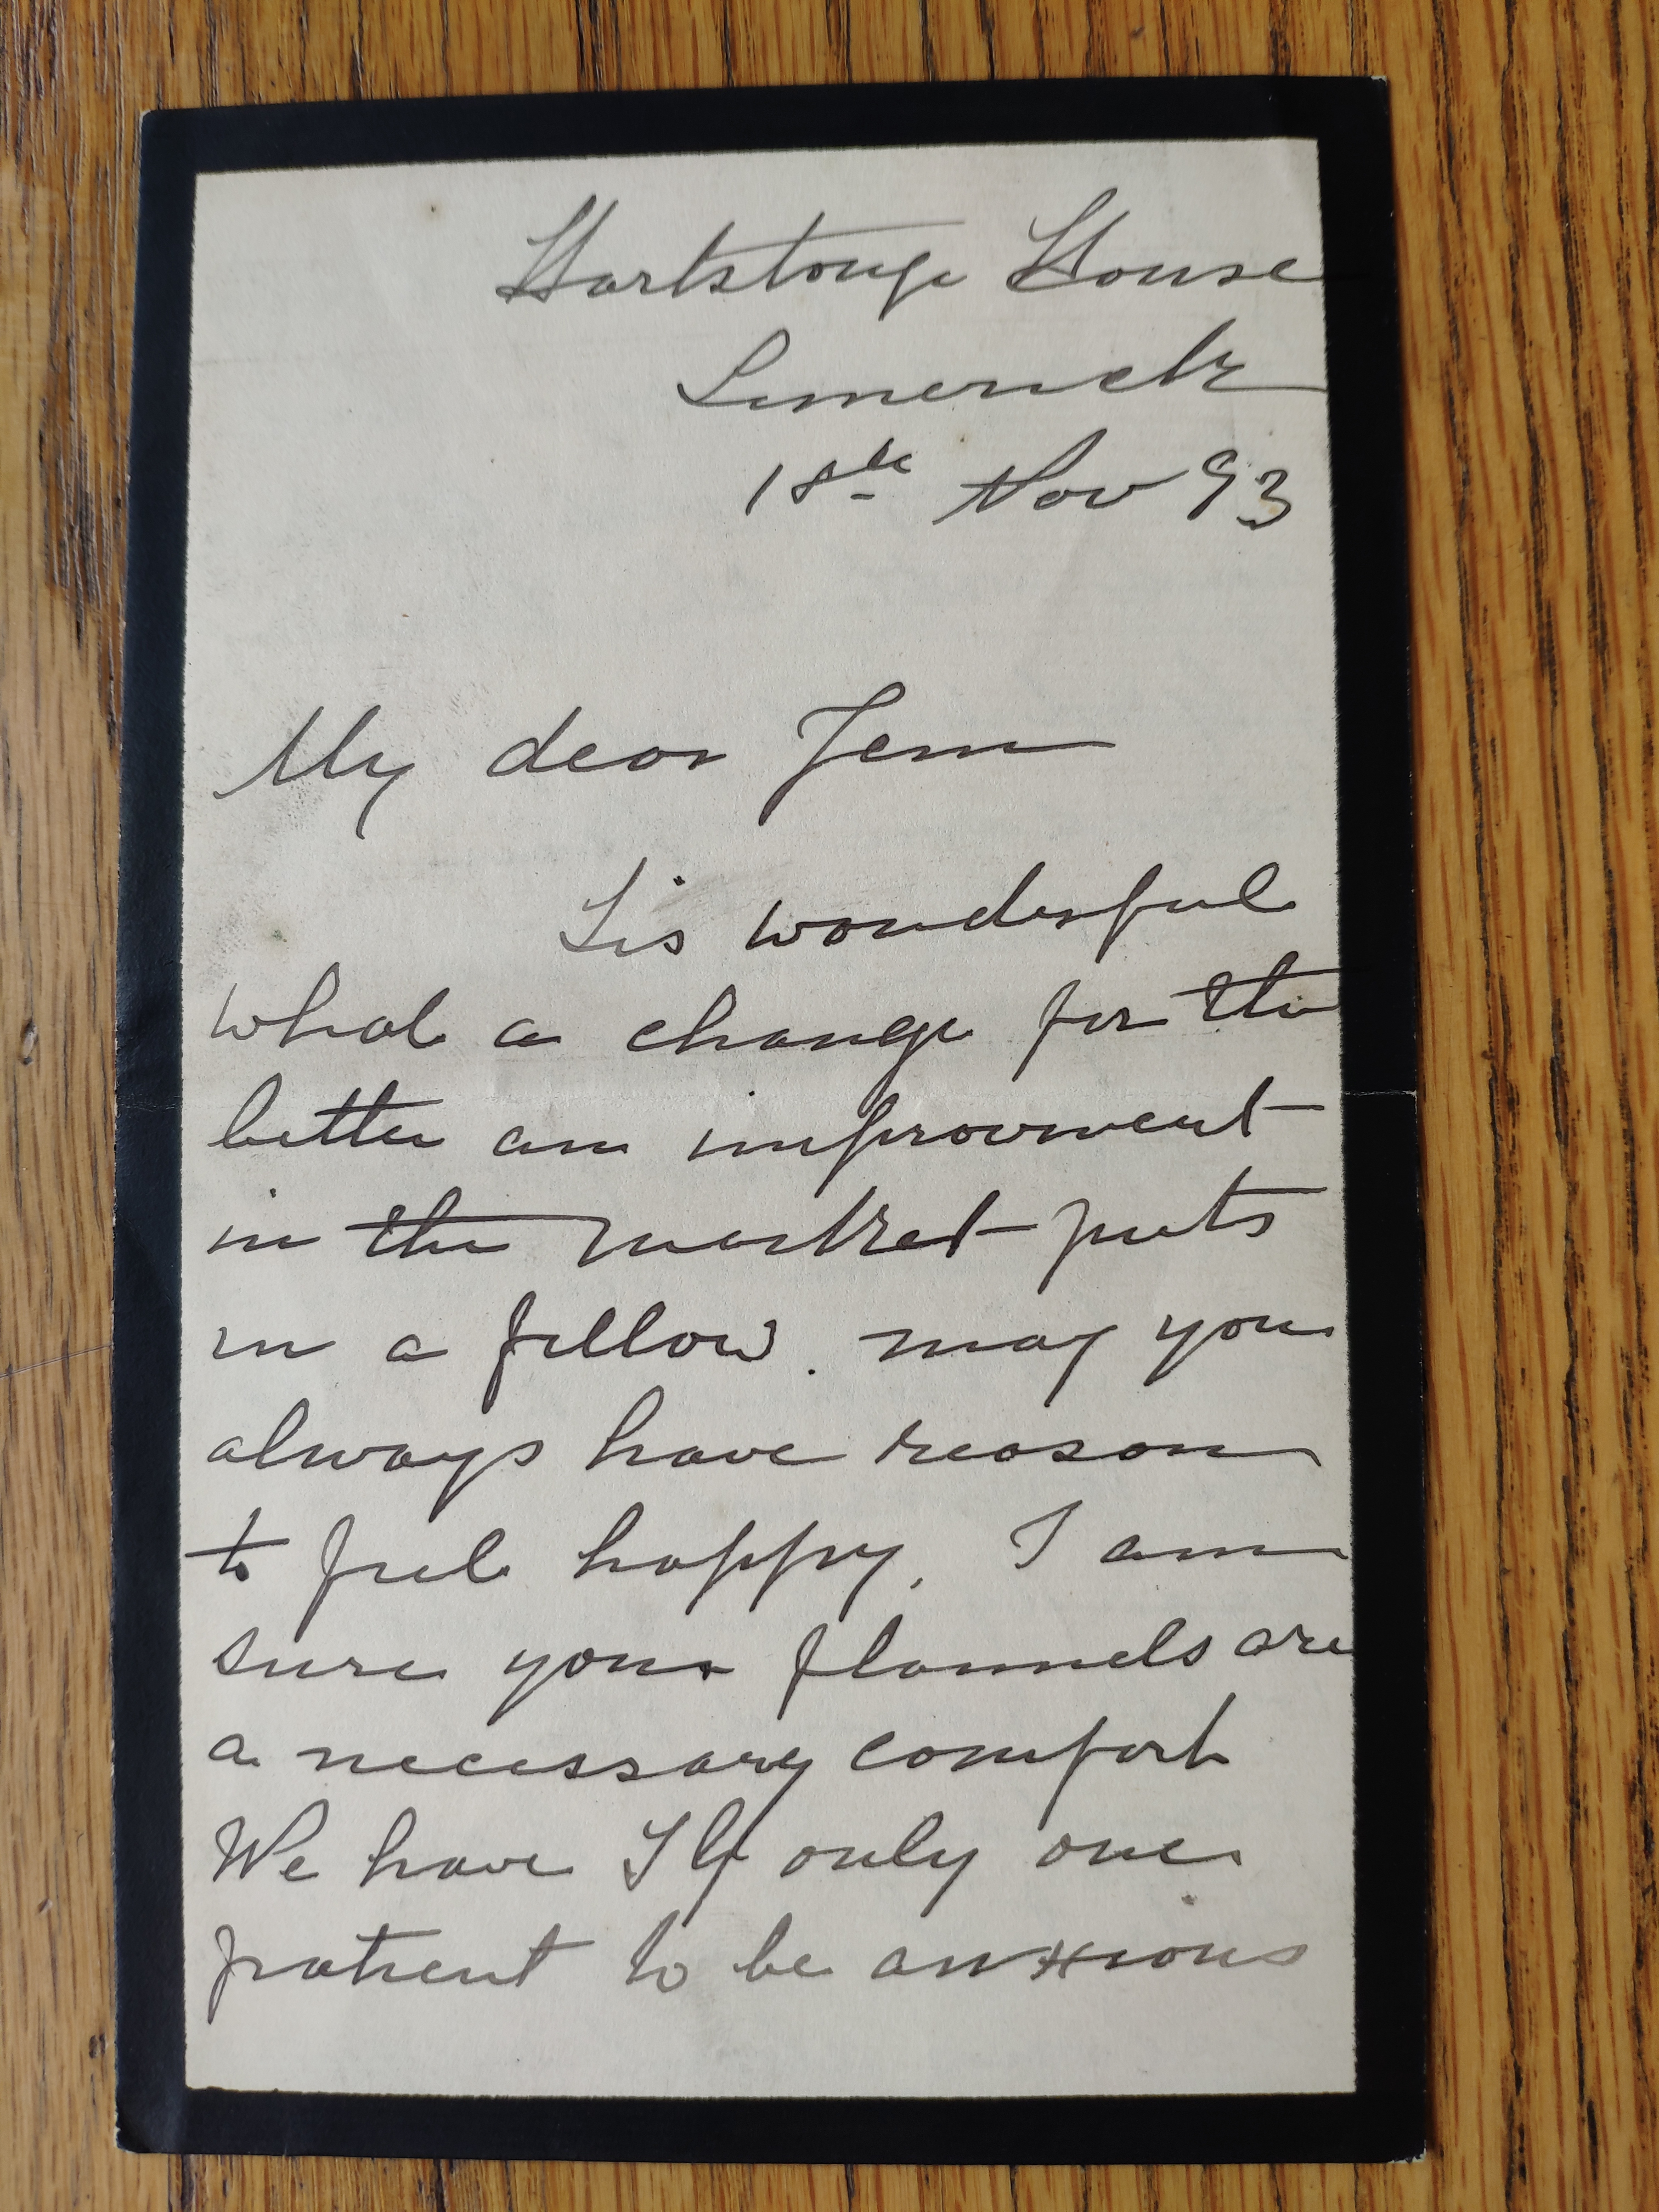 Hartstonge House
Limerick
18th Nov 93
My dear Jem
Tis wonderful
what a change for the
better an improvment
in the market puts
in a fellow. may you
always have reason
to feel happy, I am
sure your flannels are
a necessary comfort
We have T G only one
patient to be anxious